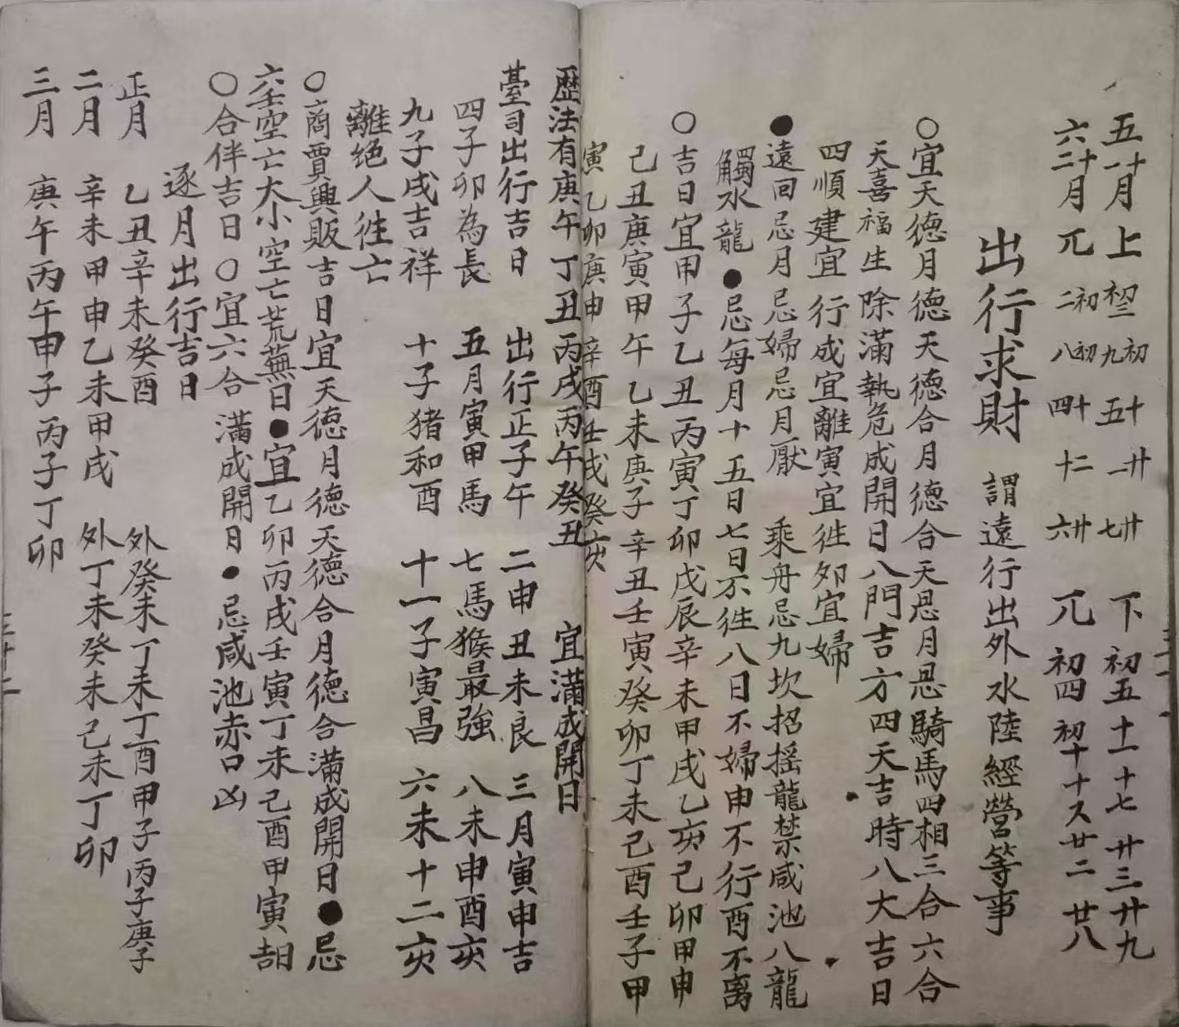 五十一月上 初三 初九 十五 廿一 廿七 下 初五 十一 十七 廿三 廿九
六十二月兀 初二 初八 十四 二十 廿六 兀 初四 初十 十六 廿二 廿八
出行求財 謂遠行出外水陸經營等事
○宜天德月德天德合月德合天恩月恩騎馬四相三合六合
天喜福生除滿執危成開日八門吉方四天吉時八大吉日
四順建宜行成宜離寅宜徃夘宜婦
●遠回忌月忌婦忌月厭 乘舟忌九坎招摇龍禁咸池八龍
觸水龍●忌每月十五日七日不徃八日不婦申不行酉不离
○吉日宜甲子乙丑丙寅丁卯戊辰辛未甲戌乙亥己卯甲申
己丑庚寅甲午乙未庚子辛丑壬寅癸卯丁未己酉壬子甲
寅乙卯庚申辛酉壬戌癸亥
歷法有庚午丁丑丙戌丙午癸丑 宜滿成開日
臺司出行吉日 出行正子午 二申丑未良 三月寅申吉
四子卯為長 五月寅甲馬 七馬猴最強 八未申酉亥
九子戌吉祥 十子猪和酉 十一子寅昌 六未十二亥
離绝人徃亡
○商賈興販吉日宜天德月德天德合月德合滿成開日●忌
六壬空亡大小空亡荒蕪日●宜乙卯丙戌壬寅丁未己酉甲寅吉日
○合伴吉日○宜六合滿成開日●忌咸池赤口凶
逐月出行吉日
正月 乙丑辛未癸酉 外癸未丁未丁酉甲子丙子庚子
二月 辛未甲申乙未甲戌 外丁未癸未己未丁卯
三月 庚午丙午甲子丙子丁卯